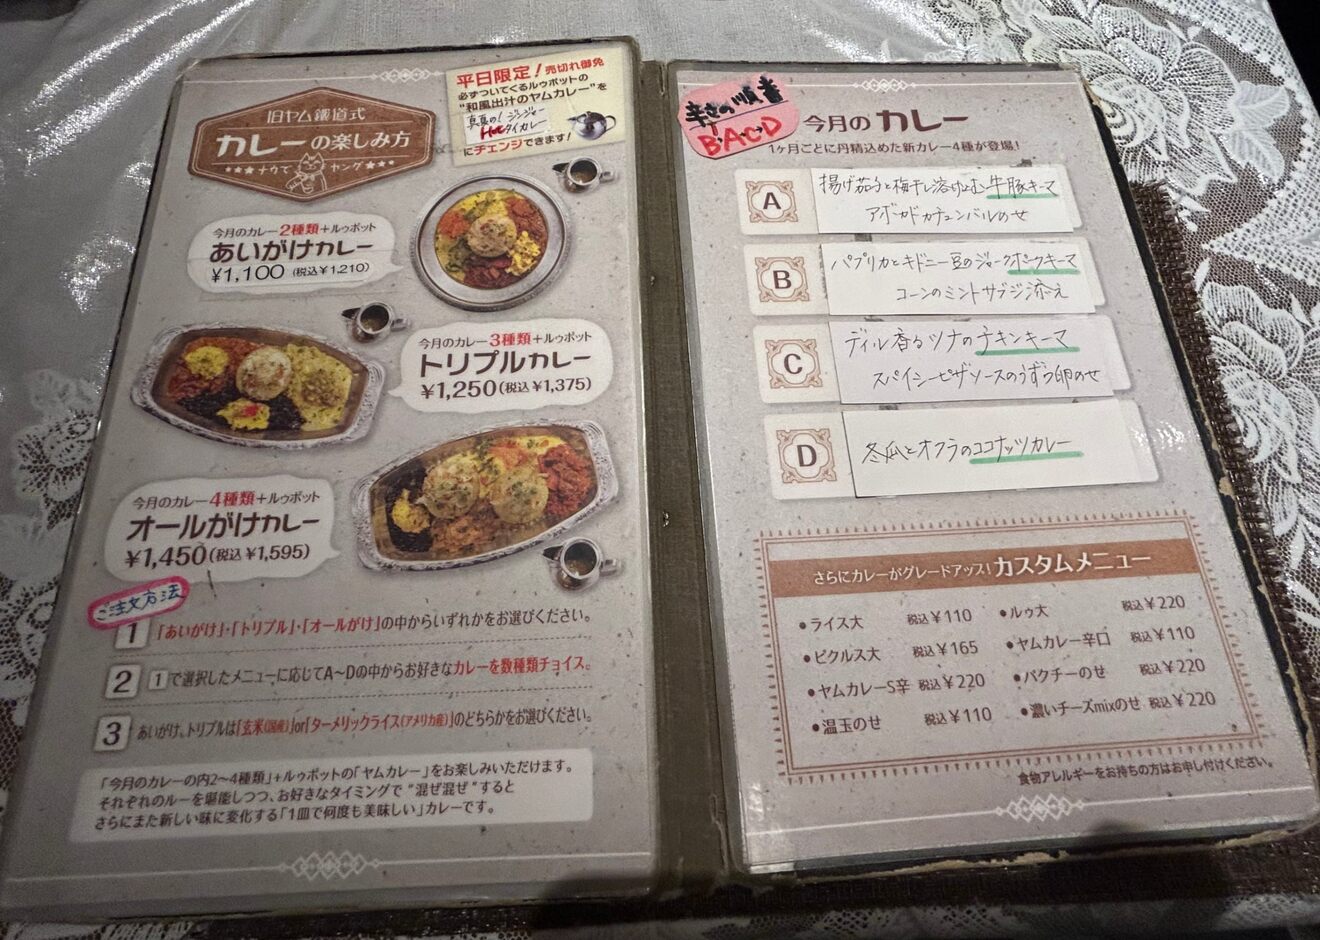 旧ヤム鐵道式
カレーの楽しみ方
★★★ナウでヤング★★★
平日限定!売切れ御免
必ずついてくるルゥポットの
“和風出汁のヤムカレー”を
真夏の!ジンジャー
Hotタイカレー
にチェンジできます!
今月のカレー2種類+ルゥポット
あいがけカレー
¥1,100(税込¥1,210)
今月のカレー3種類+ルゥポット
トリプルカレー
¥1,250(税込¥1,375)
今月のカレー4種類+ルゥポット
オールがけカレー
¥1,450(税込¥1,595)
ご注文方法
1 「あいがけ」・「トリプル」・「オールがけ」の中からいずれかをお選びください。
2 1で選択したメニューに応じてA〜Dの中からお好きなカレーを数種類チョイス。
3 あいがけ、トリプルは「玄米(国産)」or「ターメリックライス(アメリカ産)」のどちらかをお選びください。
「今月のカレーの内2〜4種類」+ルゥポットの「ヤムカレー」をお楽しみいただけます。
それぞれのルーを堪能しつつ、お好きなタイミングで“混ぜ混ぜ”すると
さらにまた新しい味に変化する「1皿で何度も美味しい」カレーです。
辛さの順番
B→A→C→D
今月のカレー
1ヶ月ごとに丹精込めた新カレー4種が登場!
A 揚げ茄子と梅干し溶け込む牛豚キーマ
アボカドカチュンバルのせ
B パプリカとキドニー豆のジャークポークキーマ
コーンのミントサブジ添え
C ディル香るツナのチキンキーマ
スパイシーピザソースのうずら卵のせ
D 冬瓜とオクラのココナッツカレー
さらにカレーがグレードアップ!カスタムメニュー
●ライス大 税込¥110
●ルゥ大 税込¥220
●ピクルス大 税込¥165
●ヤムカレー辛口 税込¥110
●ヤムカレーS辛 税込¥220
●パクチーのせ 税込¥220
●温玉のせ 税込¥110
●濃いチーズmixのせ 税込¥220
食物アレルギーをお持ちの方はお申し付けください。